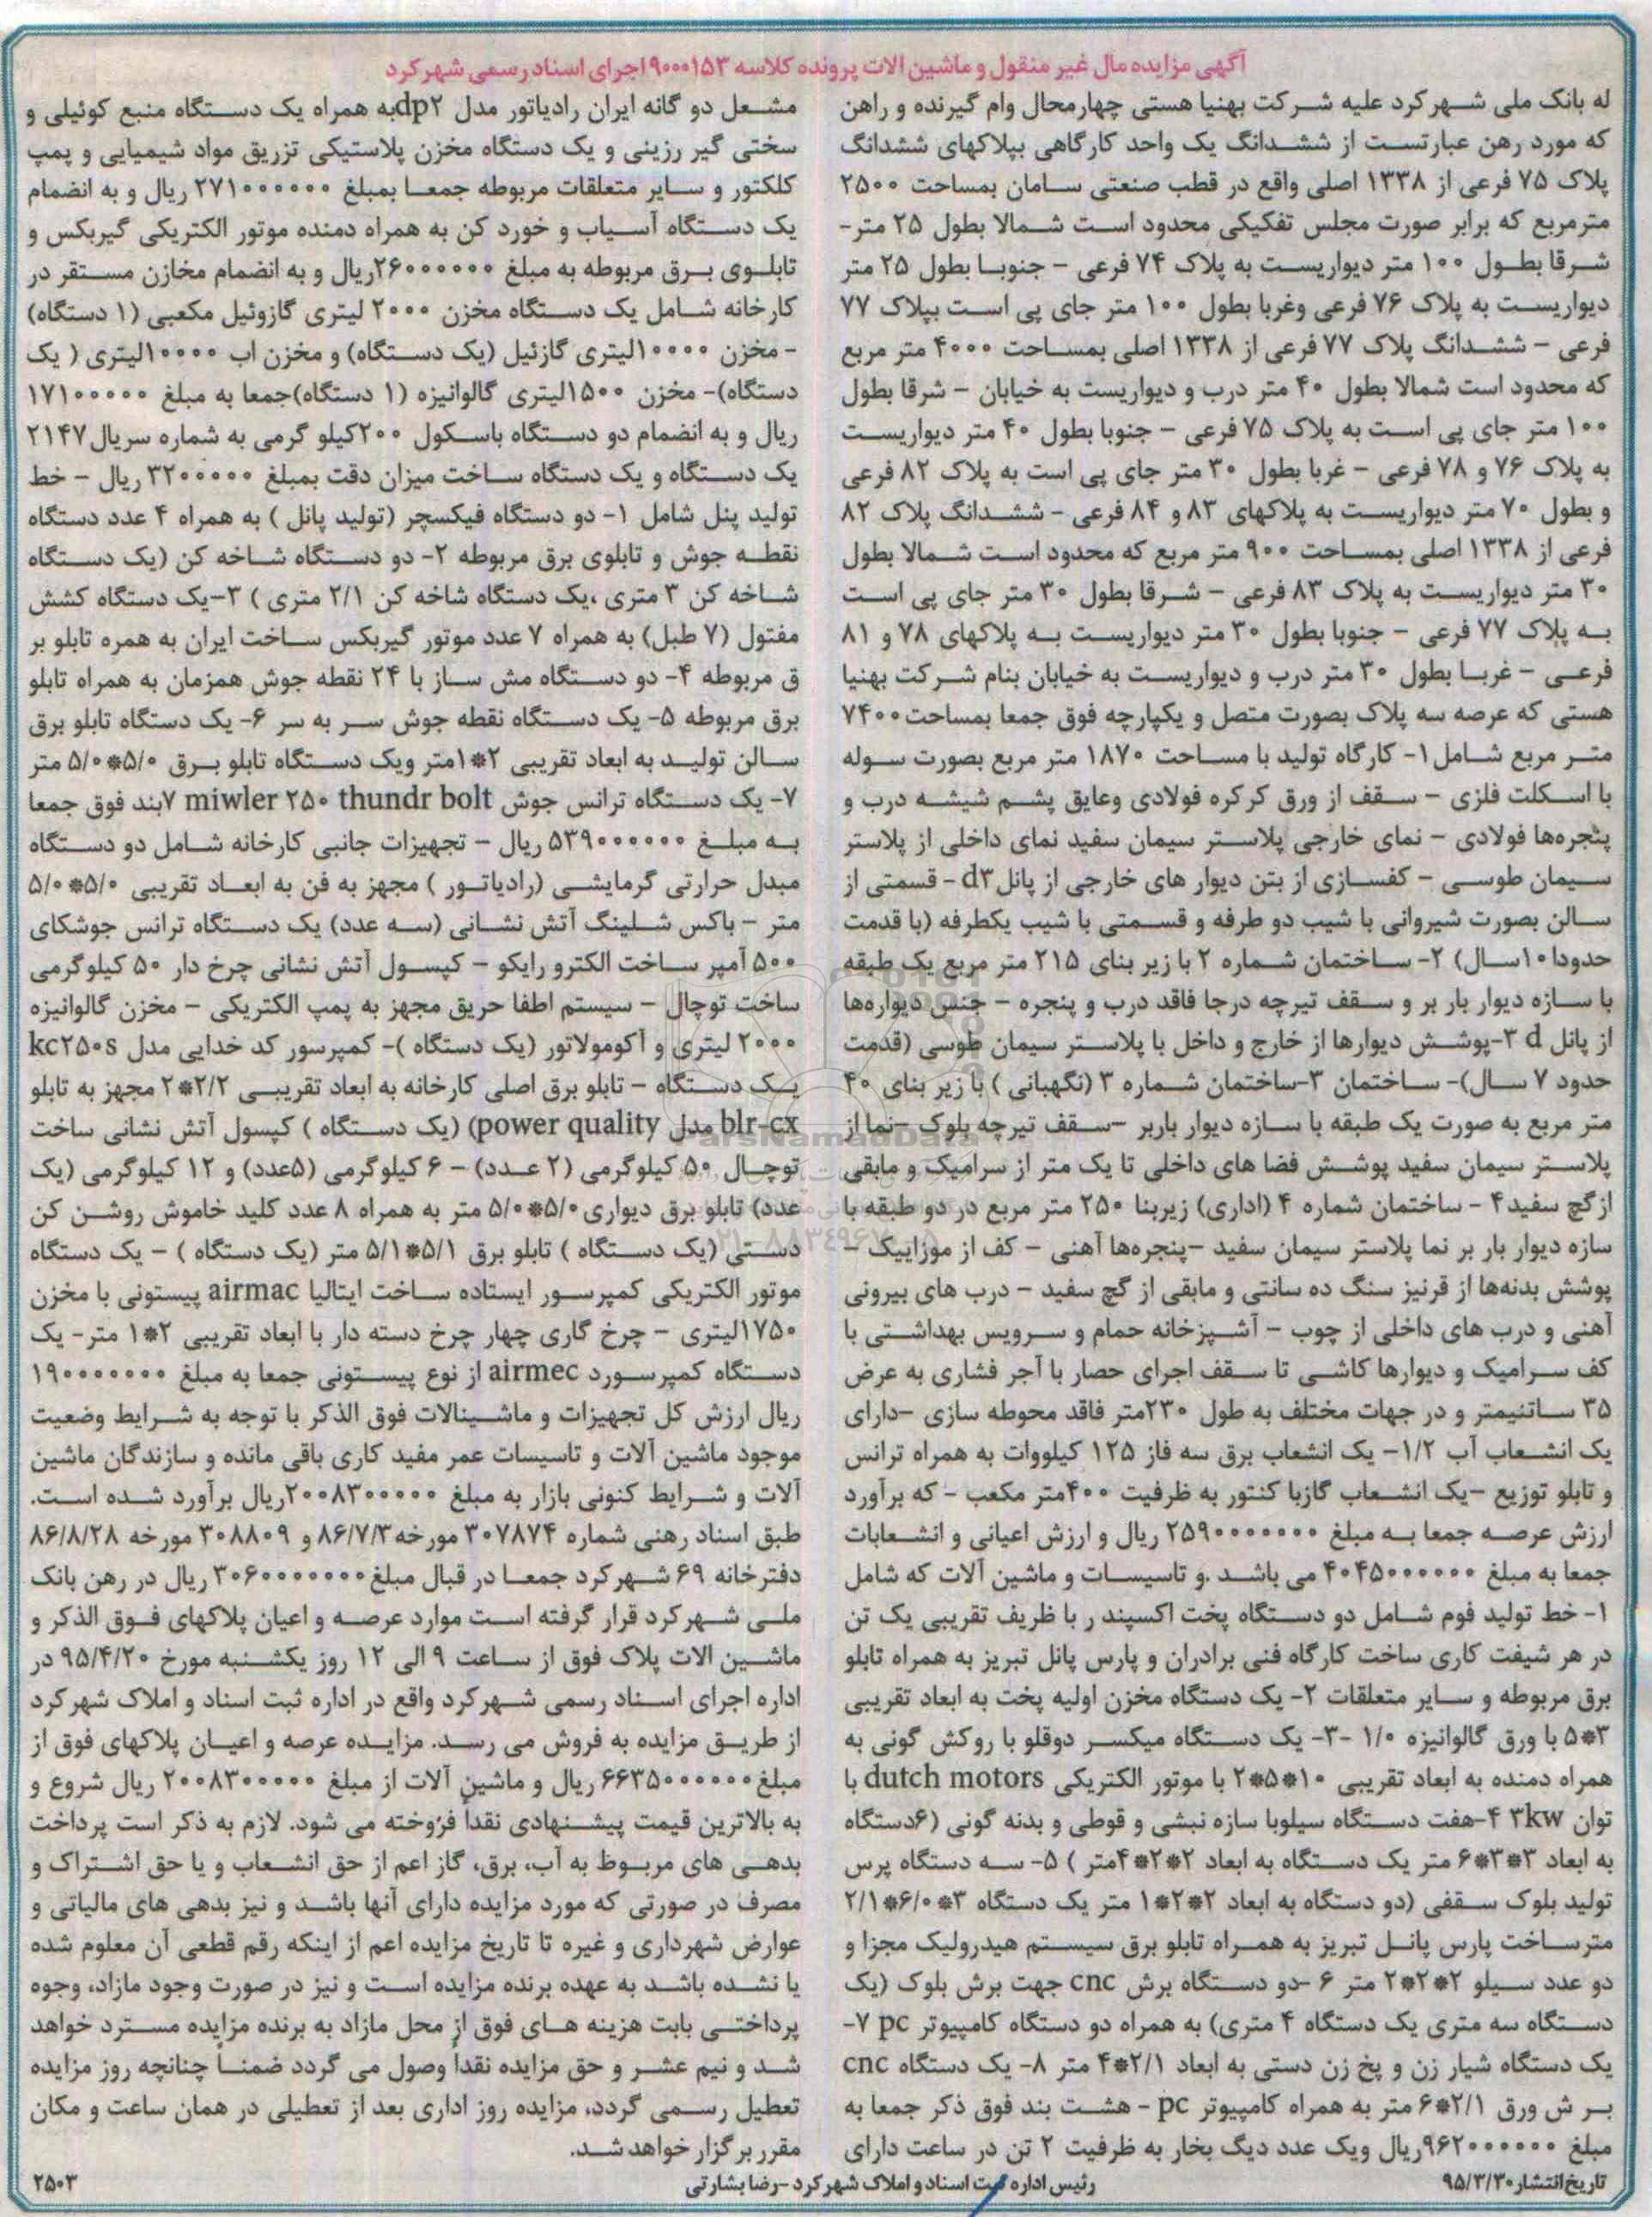 آگهی مزایده مال غیر منقول و ماشین الات پرونده کلاسه ۹۰۰۰۱۵۳ اجرای اسناد رسمی شهرکرد
له بانک ملی شهرکرد علیه شرکت بهنیا هستی چهارمحال وام گیرنده و راهن
که مورد رهن عبارتست از ششدانگ یک واحد کارگاهی بپلاکهای ششدانگ
پلاک ۷۵ فرعی از ۱۳۳۸ اصلی واقع در قطب صنعتی سامان بمساحت ۲۵۰۰
مترمربع که برابر صورت مجلس تفکیکی محدود است شمالا بطول ۲۵ متر-
شرقا بطول ۱۰۰ متر دیواریست به پلاک ۷۴ فرعی - جنوبا بطول ۲۵ متر
دیواریست به پلاک ۷۶ فرعی وغربا بطول ۱۰۰ متر جای پی است بپلاک ۷۷
فرعی - ششدانگ پلاک ۷۷ فرعی از ۱۳۳۸ اصلی بمساحت ۴۰۰۰ متر مربع
که محدود است شمالا بطول ۴۰ متر درب و دیواریست به خیابان - شرقا بطول
۱۰۰ متر جای پی است به پلاک ۷۵ فرعی - جنوبا بطول ۴۰ متر دیواریست
به پلاک ۷۶ و ۷۸ فرعی - غربا بطول ۳۰ متر جای پی است به پلاک ۸۲ فرعی
و بطول ۷۰ متر دیواریست به پلاکهای ۸۳ و ۸۴ فرعی - ششدانگ پلاک ۸۲
فرعی از ۱۳۳۸ اصلی بمساحت ۹۰۰ متر مربع که محدود است شمالا بطول
۳۰ متر دیواریست به پلاک ۸۳ فرعی - شرقا بطول ۳۰ متر جای پی است
به پلاک ۷۷ فرعی - جنوبا بطول ۳۰ متر دیواریست به پلاکهای ۷۸ و ۸۱
فرعی - غربا بطول ۳۰ متر درب و دیواریست به خیابان بنام شرکت بهنیا
هستی که عرصه سه پلاک بصورت متصل و یکپارچه فوق جمعا بمساحت ۷۴۰۰
متر مربع شامل ۱- کارگاه تولید با مساحت ۱۸۷۰ متر مربع بصورت سوله
با اسکلت فلزی - سقف از ورق کرکره فولادی وعایق پشم شیشه درب و
پنجره‌ها فولادی - نمای خارجی پلاستر سیمان سفید نمای داخلی از پلاستر
سیمان طوسی - کفسازی از بتن دیوار های خارجی از پانل d۳ - قسمتی از
سالن بصورت شیروانی با شیب دو طرفه و قسمتی با شیب یکطرفه (با قدمت
حدودا ۱۰سال) ۲- ساختمان شماره ۲ با زیر بنای ۲۱۵ متر مربع یک طبقه
با سازه دیوار بار بر و سقف تیرچه درجا فاقد درب و پنجره - جنس دیواره‌ها
از پانل d ۳-پوشش دیوارها از خارج و داخل با پلاستر سیمان طوسی (قدمت
حدود ۷ سال)- ساختمان ۳-ساختمان شماره ۳ (نگهبانی ) با زیر بنای ۴۰
متر مربع به صورت یک طبقه با سازه دیوار باربر -سقف تیرچه بلوک -نما از
پلاستر سیمان سفید پوشش فضا های داخلی تا یک متر از سرامیک و مابقی
ازگچ سفید۴ - ساختمان شماره ۴ (اداری) زیربنا ۲۵۰ متر مربع در دو طبقه با
سازه دیوار بار بر نما پلاستر سیمان سفید -پنجره‌ها آهنی - کف از موزاییک -
پوشش بدنه‌ها از قرنیز سنگ ده سانتی و مابقی از گچ سفید - درب های بیرونی
آهنی و درب های داخلی از چوب - آشپزخانه حمام و سرویس بهداشتی با
کف سرامیک و دیوارها کاشی تا سقف اجرای حصار با آجر فشاری به عرض
۳۵ سانتیمتر و در جهات مختلف به طول ۲۳۰متر فاقد محوطه سازی -دارای
یک انشعاب آب ۱/۲- یک انشعاب برق سه فاز ۱۲۵ کیلووات به همراه ترانس
و تابلو توزیع -یک انشعاب گازبا کنتور به ظرفیت ۴۰۰متر مکعب - که برآورد
ارزش عرصه جمعا به مبلغ ۲۵۹۰۰۰۰۰۰۰ ریال و ارزش اعیانی و انشعابات
جمعا به مبلغ ۴۰۴۵۰۰۰۰۰۰ می باشد .و تاسیسات و ماشین آلات که شامل
۱- خط تولید فوم شامل دو دستگاه پخت اکسپند ر با ظریف تقریبی یک تن
در هر شیفت کاری ساخت کارگاه فنی برادران و پارس پانل تبریز به همراه تابلو
برق مربوطه و سایر متعلقات ۲- یک دستگاه مخزن اولیه پخت به ابعاد تقریبی
۳*۵ با ورق گالوانیزه ۱/۰ -۳- یک دستگاه میکسر دوقلو با روکش گونی به
همراه دمنده به ابعاد تقریبی ۱۰*۵*۲ با موتور الکتریکی dutch motors با
توان ۳kw ۴-هفت دستگاه سیلوبا سازه نبشی و قوطی و بدنه گونی (۶دستگاه
به ابعاد ۳*۳*۶ متر یک دستگاه به ابعاد ۲*۲*۴متر ) ۵- سه دستگاه پرس
تولید بلوک سقفی (دو دستگاه به ابعاد ۲*۲*۱ متر یک دستگاه ۳*۶/۰*۲/۱
مترساخت پارس پانل تبریز به همراه تابلو برق سیستم هیدرولیک مجزا و
دو عدد سیلو ۲*۲*۲ متر ۶ -دو دستگاه برش cnc جهت برش بلوک (یک
دستگاه سه متری یک دستگاه ۴ متری) به همراه دو دستگاه کامپیوتر pc ۷-
یک دستگاه شیار زن و پخ زن دستی به ابعاد ۲/۱*۴ متر ۸- یک دستگاه cnc
بر ش ورق ۲/۱*۶ متر به همراه کامپیوتر pc - هشت بند فوق ذکر جمعا به
مبلغ ۹۶۲۰۰۰۰۰۰ریال ویک عدد دیگ بخار به ظرفیت ۲ تن در ساعت دارای
مشعل دو گانه ایران رادیاتور مدل dp۲به همراه یک دستگاه منبع کوئیلی و
سختی گیر رزینی و یک دستگاه مخزن پلاستیکی تزریق مواد شیمیایی و پمپ
کلکتور و سایر متعلقات مربوطه جمعا بمبلغ ۲۷۱۰۰۰۰۰۰ ریال و به انضمام
یک دستگاه آسیاب و خورد کن به همراه دمنده موتور الکتریکی گیربکس و
تابلوی برق مربوطه به مبلغ ۲۶۰۰۰۰۰۰ریال و به انضمام مخازن مستقر در
کارخانه شامل یک دستگاه مخزن ۲۰۰۰ لیتری گازوئیل مکعبی (۱ دستگاه)
- مخزن ۱۰۰۰۰لیتری گازئیل (یک دستگاه) و مخزن اب ۱۰۰۰۰لیتری ( یک
دستگاه)- مخزن ۱۵۰۰لیتری گالوانیزه (۱ دستگاه)جمعا به مبلغ ۱۷۱۰۰۰۰۰
ریال و به انضمام دو دستگاه باسکول ۲۰۰کیلو گرمی به شماره سریال۲۱۴۷
یک دستگاه و یک دستگاه ساخت میزان دقت بمبلغ ۳۲۰۰۰۰۰ ریال - خط
تولید پنل شامل ۱- دو دستگاه فیکسچر (تولید پانل ) به همراه ۴ عدد دستگاه
نقطه جوش و تابلوی برق مربوطه ۲- دو دستگاه شاخه کن (یک دستگاه
شاخه کن ۳ متری ،یک دستگاه شاخه کن ۲/۱ متری ) ۳-یک دستگاه کشش
مفتول (۷ طبل) به همراه ۷ عدد موتور گیربکس ساخت ایران به همره تابلو بر
ق مربوطه ۴- دو دستگاه مش ساز با ۲۴ نقطه جوش همزمان به همراه تابلو
برق مربوطه ۵- یک دستگاه نقطه جوش سر به سر ۶- یک دستگاه تابلو برق
سالن تولید به ابعاد تقریبی ۲*۱متر ویک دستگاه تابلو برق ۵/۰*۵/۰ متر
۷- یک دستگاه ترانس جوش miwler ۲۵۰ thundr bolt ۷بند فوق جمعا
به مبلغ ۵۳۹۰۰۰۰۰۰ ریال - تجهیزات جانبی کارخانه شامل دو دستگاه
مبدل حرارتی گرمایشی (رادیاتور ) مجهز به فن به ابعاد تقریبی ۵/۰*۵/۰
متر - باکس شلینگ آتش نشانی (سه عدد) یک دستگاه ترانس جوشکای
۵۰۰ آمپر ساخت الکترو رایکو - کپسول آتش نشانی چرخ دار ۵۰ کیلوگرمی
ساخت توچال - سیستم اطفا حریق مجهز به پمپ الکتریکی - مخزن گالوانیزه
۲۰۰۰ لیتری و آکومولاتور (یک دستگاه )- کمپرسور کد خدایی مدل kc۲۵۰s
یک دستگاه - تابلو برق اصلی کارخانه به ابعاد تقریبی ۲/۲*۲ مجهز به تابلو
blr-cx مدل power quality) (یک دستگاه ) کپسول آتش نشانی ساخت
توچال ۵۰ کیلوگرمی (۲ عدد) - ۶ کیلوگرمی (۵عدد) و ۱۲ کیلوگرمی (یک
عدد) تابلو برق دیواری۵/۰*۵/۰ متر به همراه ۸ عدد کلید خاموش روشن کن
دستی (یک دستگاه ) تابلو برق ۵/۱*۵/۱ متر (یک دستگاه ) - یک دستگاه
موتور الکتریکی کمپرسور ایستاده ساخت ایتالیا airmac پیستونی با مخزن
۱۷۵۰لیتری - چرخ گاری چهار چرخ دسته دار با ابعاد تقریبی ۲*۱ متر- یک
دستگاه کمپرسورد airmec از نوع پیستونی جمعا به مبلغ ۱۹۰۰۰۰۰۰۰
ریال ارزش کل تجهیزات و ماشینالات فوق الذکر با توجه به شرایط وضعیت
موجود ماشین آلات و تاسیسات عمر مفید کاری باقی مانده و سازندگان ماشین
آلات و شرایط کنونی بازار به مبلغ ۲۰۰۸۳۰۰۰۰۰ریال برآورد شده است.
طبق اسناد رهنی شماره ۳۰۷۸۷۴ مورخه۸۶/۷/۳ و ۳۰۸۸۰۹ مورخه ۸۶/۸/۲۸
دفترخانه ۶۹ شهرکرد جمعا در قبال مبلغ ۳۰۶۰۰۰۰۰۰۰ ریال در رهن بانک
ملی شهرکرد قرار گرفته است موارد عرصه و اعیان پلاکهای فوق الذکر و
ماشین الات پلاک فوق از ساعت ۹ الی ۱۲ روز یکشنبه مورخ ۹۵/۴/۲۰ در
اداره اجرای اسناد رسمی شهرکرد واقع در اداره ثبت اسناد و املاک شهرکرد
از طریق مزایده به فروش می رسد. مزایده عرصه و اعیان پلاکهای فوق از
مبلغ ۶۶۳۵۰۰۰۰۰۰ ریال و ماشین آلات از مبلغ ۲۰۰۸۳۰۰۰۰۰ ریال شروع و
به بالاترین قیمت پیشنهادی نقداً فروخته می شود. لازم به ذکر است پرداخت
بدهی های مربوط به آب، برق، گاز اعم از حق انشعاب و یا حق اشتراک و
مصرف در صورتی که مورد مزایده دارای آنها باشد و نیز بدهی های مالیاتی و
عوارض شهرداری و غیره تا تاریخ مزایده اعم از اینکه رقم قطعی آن معلوم شده
یا نشده باشد به عهده برنده مزایده است و نیز در صورت وجود مازاد، وجوه
پرداختی بابت هزینه های فوق از محل مازاد به برنده مزایده مسترد خواهد
شد و نیم عشر و حق مزایده نقداً وصول می گردد ضمناً چنانچه روز مزایده
تعطیل رسمی گردد، مزایده روز اداری بعد از تعطیلی در همان ساعت و مکان
مقرر برگزار خواهد شد.
تاریخ انتشار ۹۵/۳/۳۰
رئیس اداره ثبت اسناد و املاک شهرکرد - رضا بشارتی
۲۵۰۳